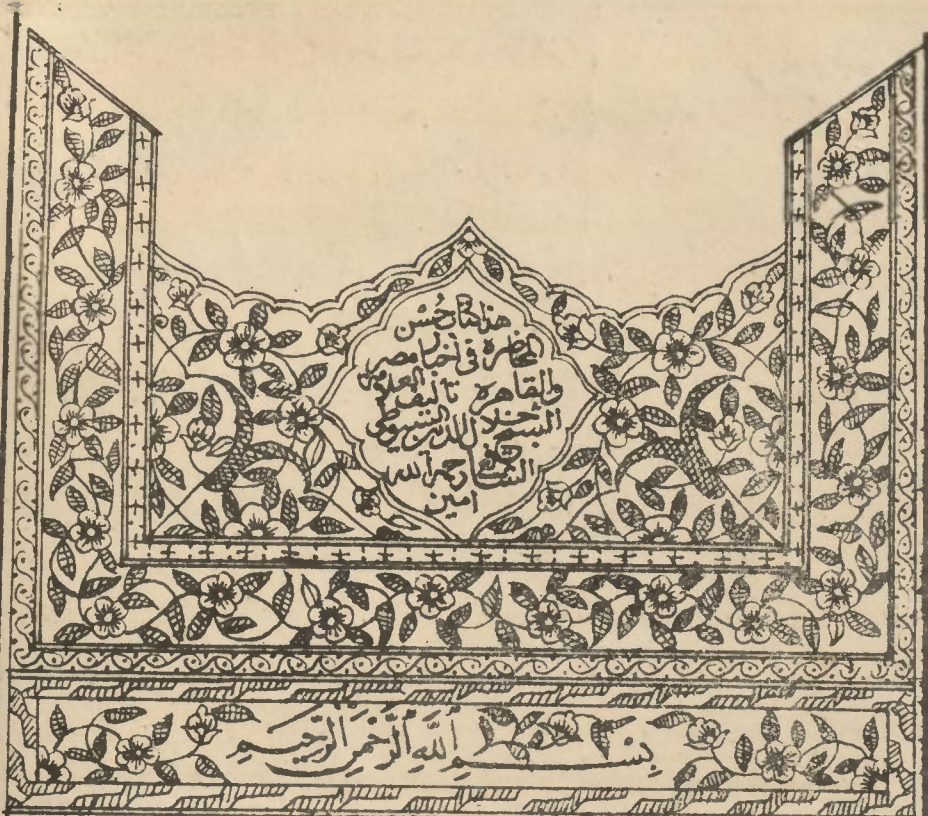 هذا كتاب حسن
المحاضرة فى اخبار مصر
والقاهرة تأليف العلامة
الشيخ جلال الدين السيوطى
الشافعى رحمه الله
امين
بِسْمِ اللَّهِ الرَّحْمٰنِ الرَّحِيمِ